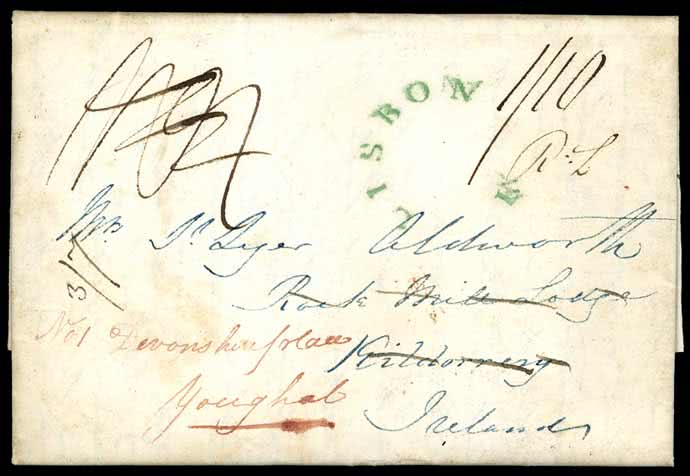 LISBON
1/10
R. L
3/7
Mrs St Leger Aldworth
Rock Mill Lodge
Kildorrery
Ireland
No 1 Devonshire place
Youghal